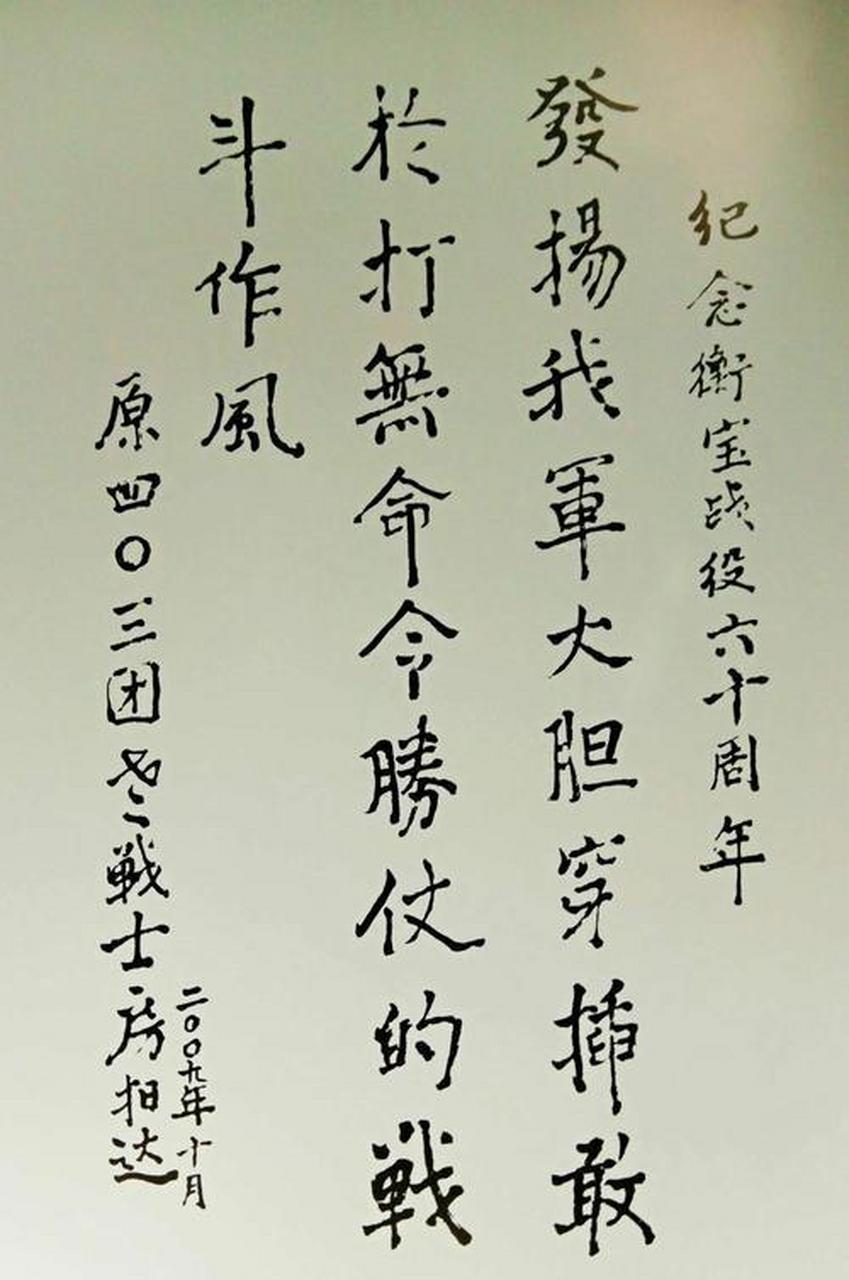 纪念衡宝战役六十周年
發揚我軍大胆穿插敢
於打無命令勝仗的戰
斗作風
原四〇三团老戰士房相达
二〇〇九年十月